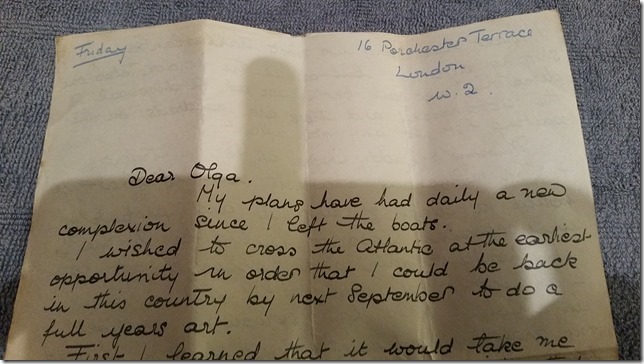 Friday.
16 Porchester Terrace
London
W.2.
Dear Olga.
My plans have had daily a new
complexion since I left the boats.
I wished to cross the Atlantic at the earliest
opportunity in order that I could be back
in this country by next September to do a
full years art.
First I learned that it would take me